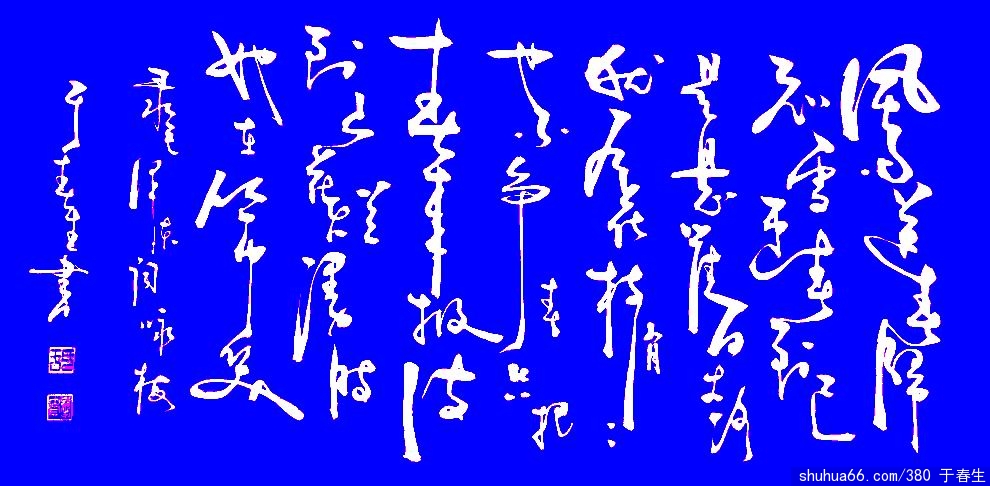 風雨送春歸
飛雪迎春到已
是悬崖百丈冰
犹有花枝俏々
也不争春只把
春来报待
到山花烂漫时
她在丛中笑
录毛泽东词咏梅
于春生書
shuhua66.com/380 于春生